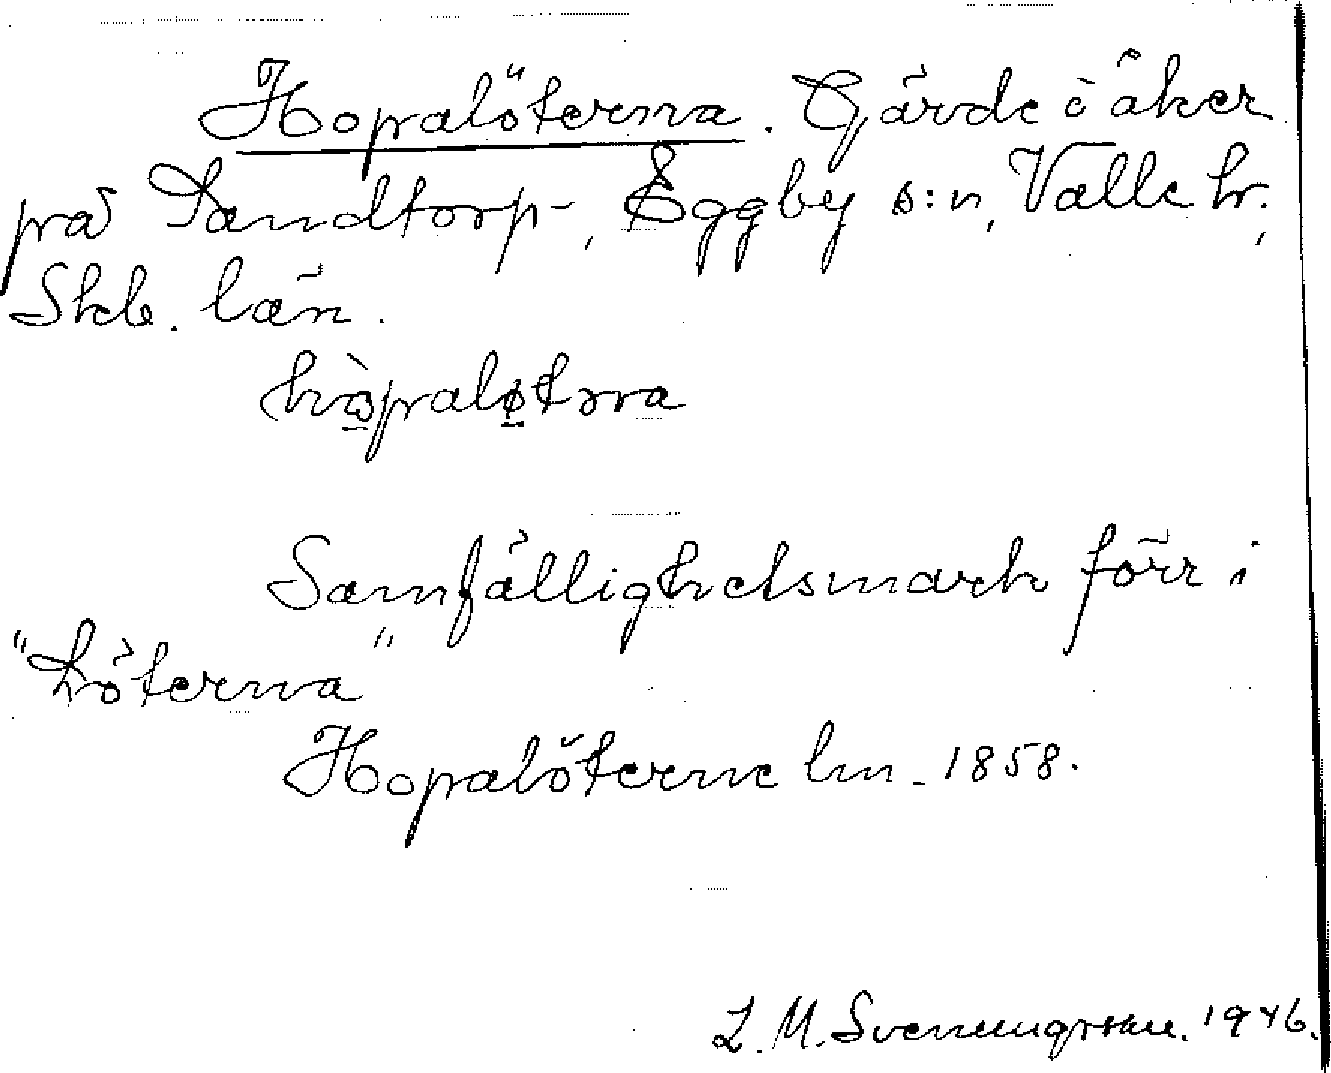 Hopalöterna. Gärde i åker
på Sandtorp, Eggby s:n, Valle hr.,
Skb. län.
hòpaløtɔrna
Samfällighetsmark förr i
"Löterna"
Hopalöterne lm. 1858.
L. M. Svenungsson. 1946.